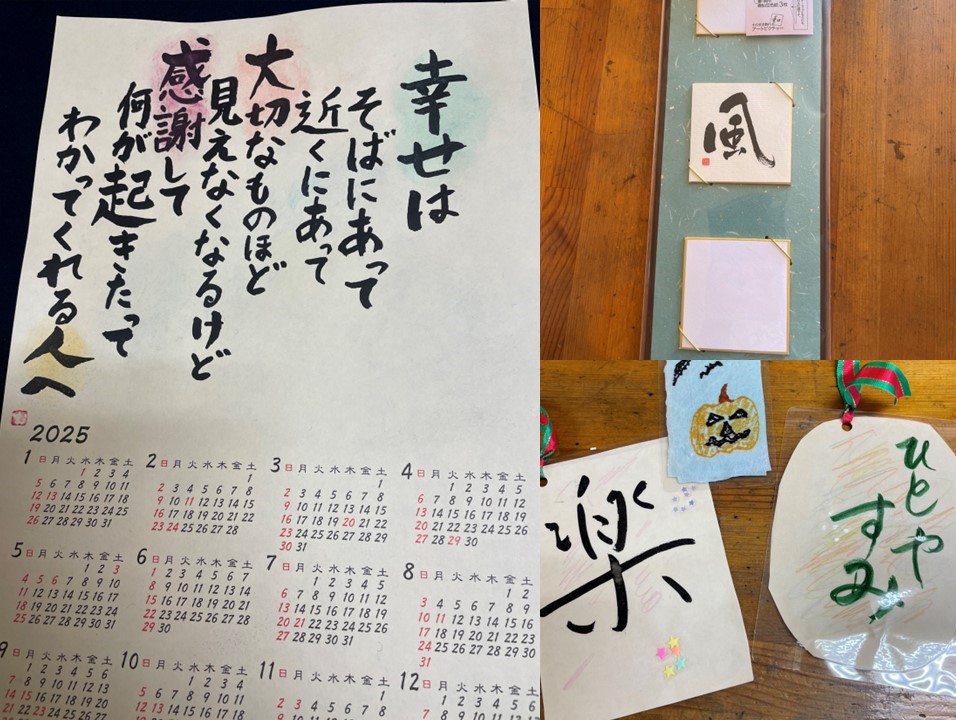 幸せは
そばにあって
近くにあって
大切なものほど
見えなくなるけど
感謝して
何が起きたって
わかってくれる人へ
2025
1 日月火水木金土
1 2 3 4
5 6 7 8 9 10 11
12 13 14 15 16 17 18
19 20 21 22 23 24 25
26 27 28 29 30 31
2 日月火水木金土
1
2 3 4 5 6 7 8
9 10 11 12 13 14 15
16 17 18 19 20 21 22
23 24 25 26 27 28
3 日月火水木金土
1
2 3 4 5 6 7 8
9 10 11 12 13 14 15
16 17 18 19 20 21 22
23 24 25 26 27 28 29
30 31
4 日月火水木金土
1 2 3 4 5
6 7 8 9 10 11 12
13 14 15 16 17 18 19
20 21 22 23 24 25 26
27 28 29 30
5 日月火水木金土
1 2 3
4 5 6 7 8 9 10
11 12 13 14 15 16 17
18 19 20 21 22 23 24
25 26 27 28 29 30 31
6 日月火水木金土
1 2 3 4 5 6 7
8 9 10 11 12 13 14
15 16 17 18 19 20 21
22 23 24 25 26 27 28
29 30
7 日月火水木金土
1 2 3 4 5
6 7 8 9 10 11 12
13 14 15 16 17 18 19
20 21 22 23 24 25 26
27 28 29 30 31
8 日月火水木金土
1 2
3 4 5 6 7 8 9
10 11 12 13 14 15 16
17 18 19 20 21 22 23
24 25 26 27 28 29 30
31
9 日月火水木金土
1 2 3 4 5 6
7 8 9 10 11 12 13
14 15 16 17 18 19 20
10 日月火水木金土
1 2 3 4
5 6 7 8 9 10 11
11 日月火水木金土
1
2 3 4 5 6 7 8
12 日月火水木金土
1 2 3 4 5 6
7 8 9 10 11 12 13
アートピクチャー
風
楽
ひとやすみ